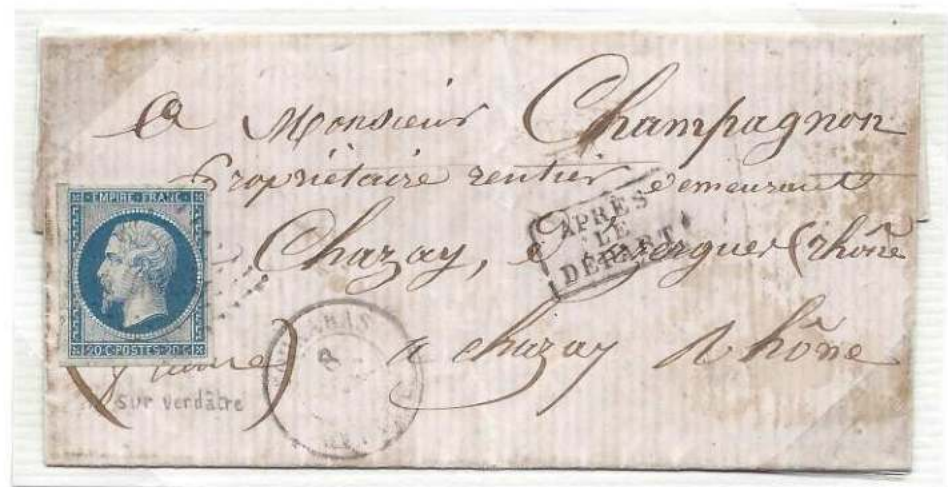 A Monsieur Champagnon
Propriétaire rentier demeurant
Chazay, d'Azergues (rhône
) a chazay Rhône
EMPIRE FRANC
20 C POSTES 20 C
APRÈS
LE
DÉPART
8
sur verdâtre